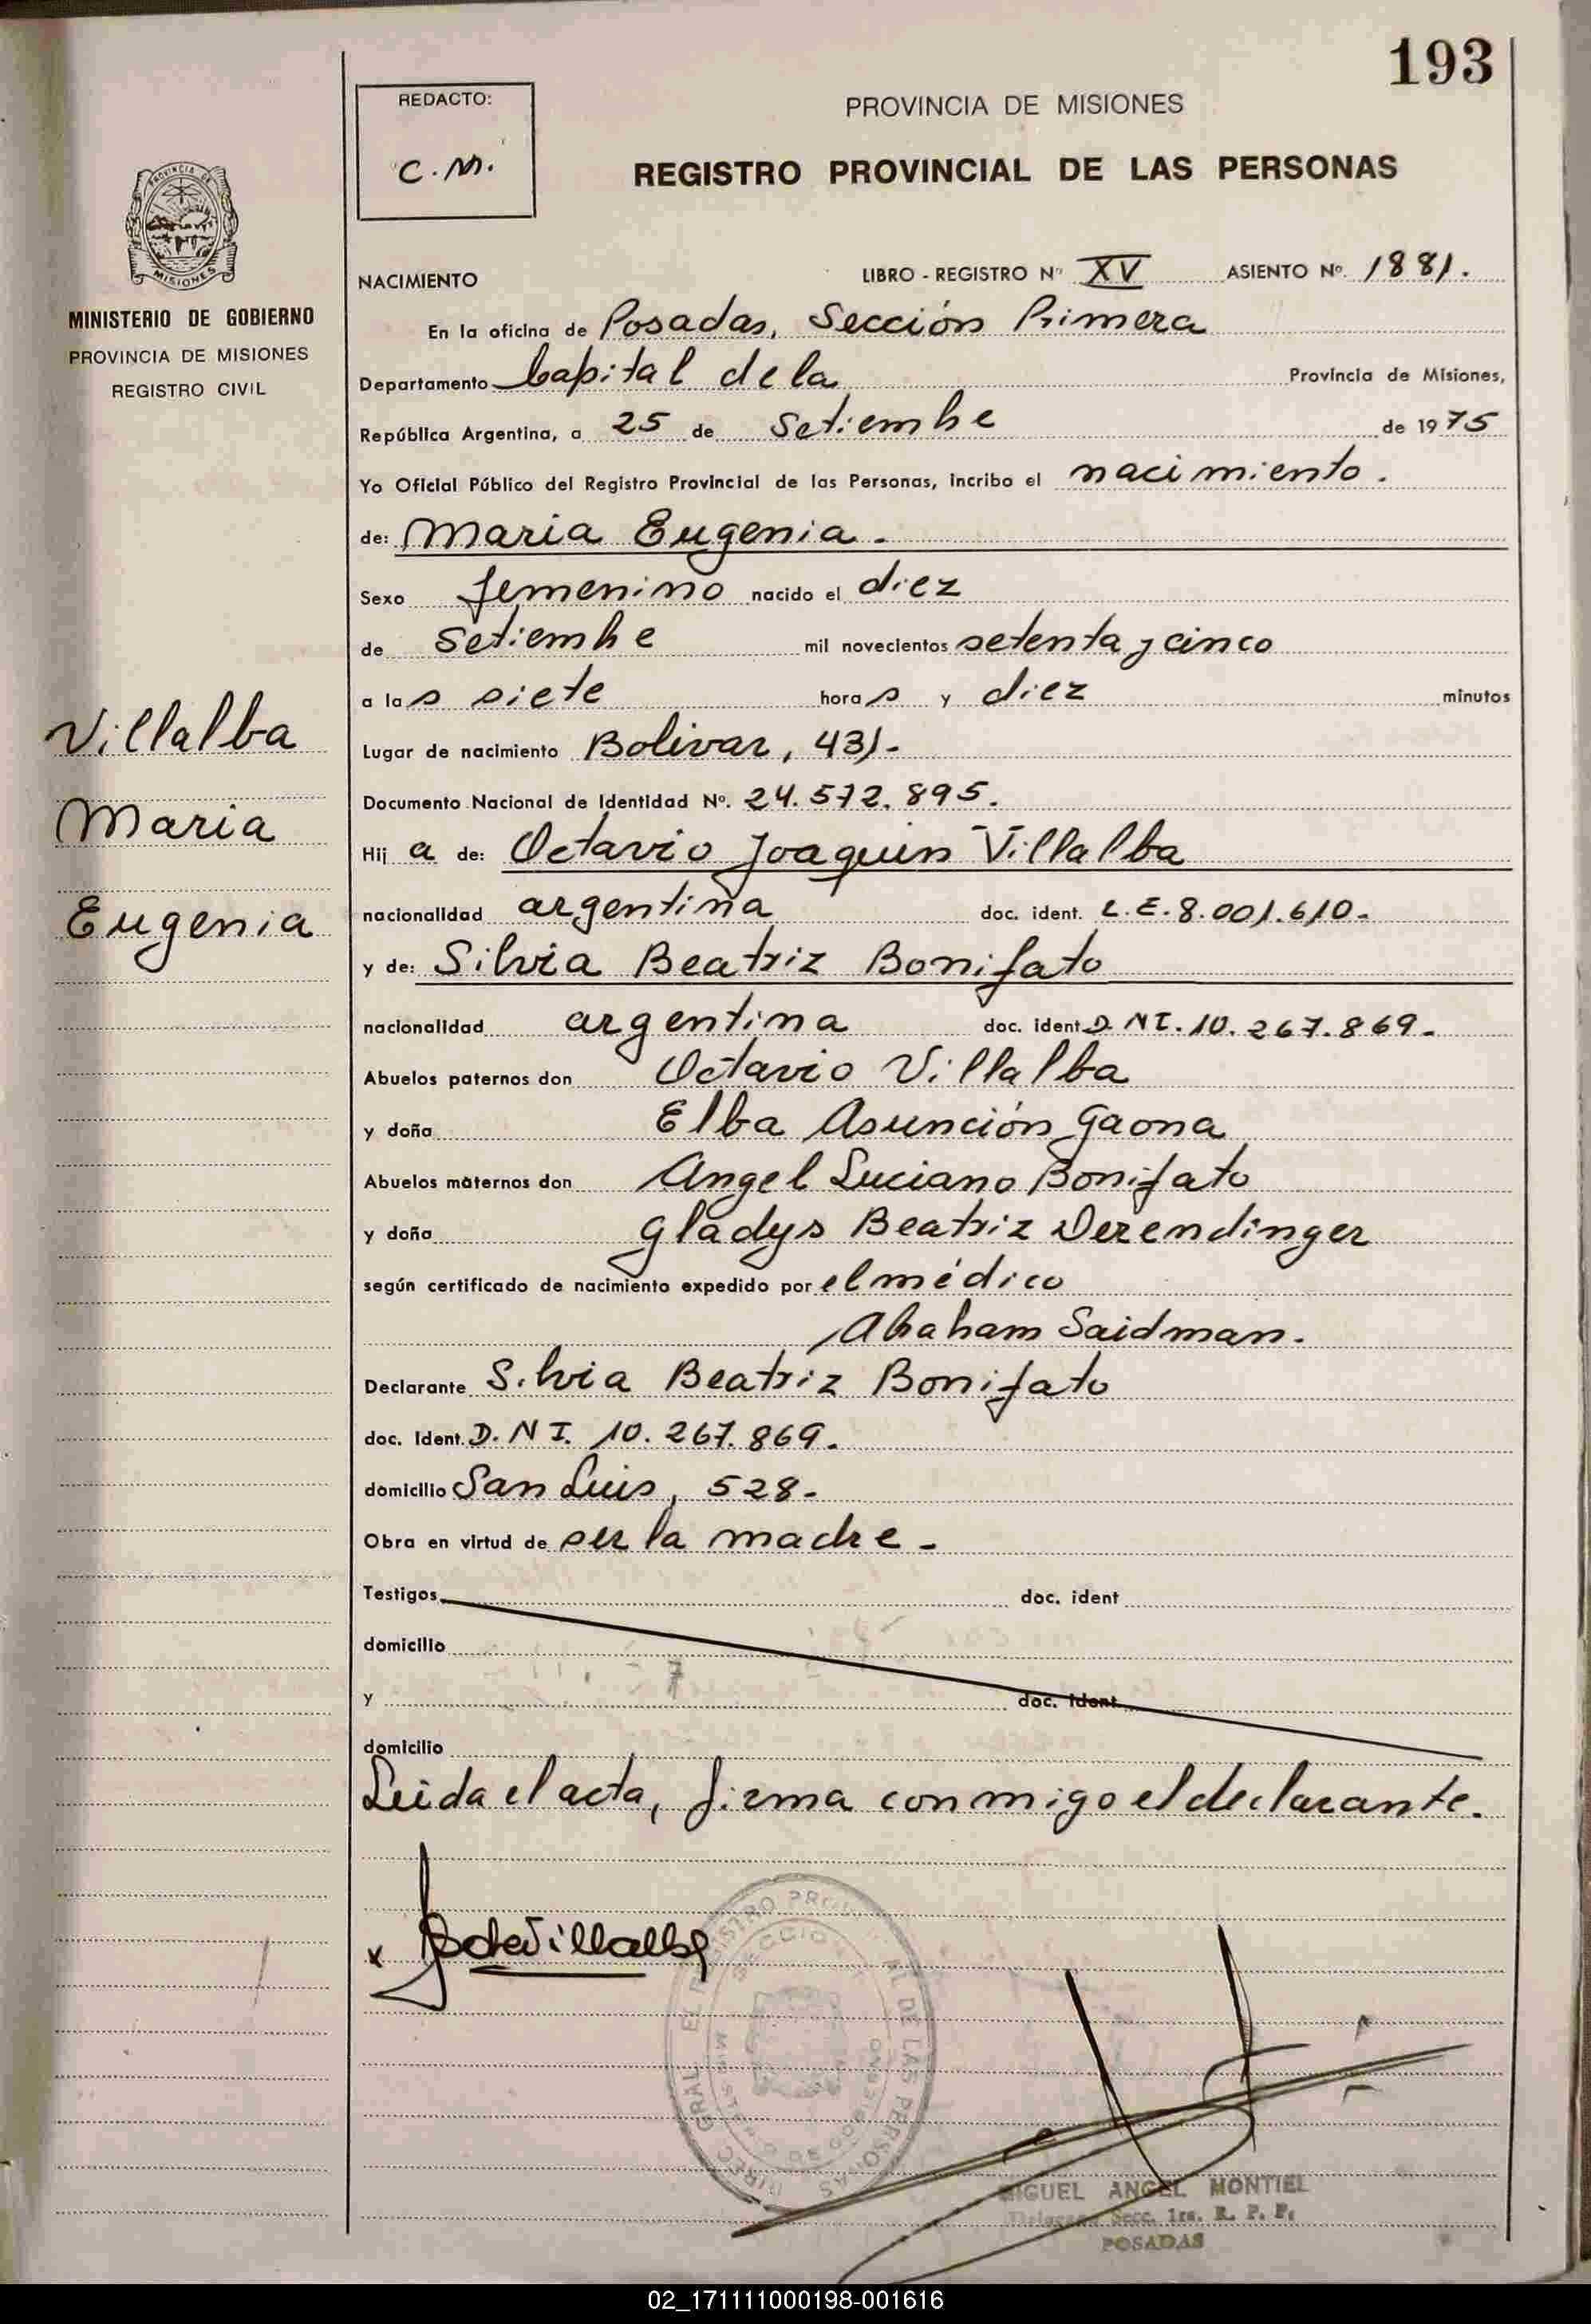 193
REDACTO:
C.M.
PROVINCIA DE MISIONES
REGISTRO PROVINCIAL DE LAS PERSONAS
PROVINCIA DE
MISIONES
MINISTERIO DE GOBIERNO
PROVINCIA DE MISIONES
REGISTRO CIVIL
Villalba
Maria
Eugenia
NACIMIENTO LIBRO - REGISTRO Nº XV ASIENTO Nº. 1881.
En la oficina de Posadas, Sección Primera
Departamento Capital de la Provincia de Misiones,
República Argentina, a 25 de Setiembre de 1975
Yo Oficial Público del Registro Provincial de las Personas, incribo el nacimiento.
de: Maria Eugenia.
Sexo femenino nacido el diez
de Setiembre mil novecientos setenta y cinco
a las siete horas y diez minutos
Lugar de nacimiento Bolivar, 431-
Documento Nacional de Identidad Nº. 24.572.895.
Hija de: Octavio Joaquin Villalba
nacionalidad argentina doc. ident. L.E. 8.001.610-
y de: Silvia Beatriz Bonifato
nacionalidad argentina doc. ident D.N.I. 10.267.869-
Abuelos paternos don Octavio Villalba
y doña Elba Asunción Gaona
Abuelos maternos don Angel Luciano Bonifato
y doña Gladys Beatriz Derendinger
según certificado de nacimiento expedido por el médico
Abraham Saidman.
Declarante Silvia Beatriz Bonifato
doc. Ident. D.N.I. 10.267.869.
domicilio San Luis, 528-
Obra en virtud de ser la madre-
Testigos doc. ident
domicilio
y doc. ident
domicilio
Leida el acta, firma conmigo el declarante.
x BdeVillalba
DIREC GRAL EL REGISTRO PROVINCIAL DE LAS PERSONAS
SECCION
MINISTERIO DE GOBIERNO
MIGUEL ANGEL MONTIEL
Delegado Secc. 1ra. R. P. P.
POSADAS
02_171111000198-001616